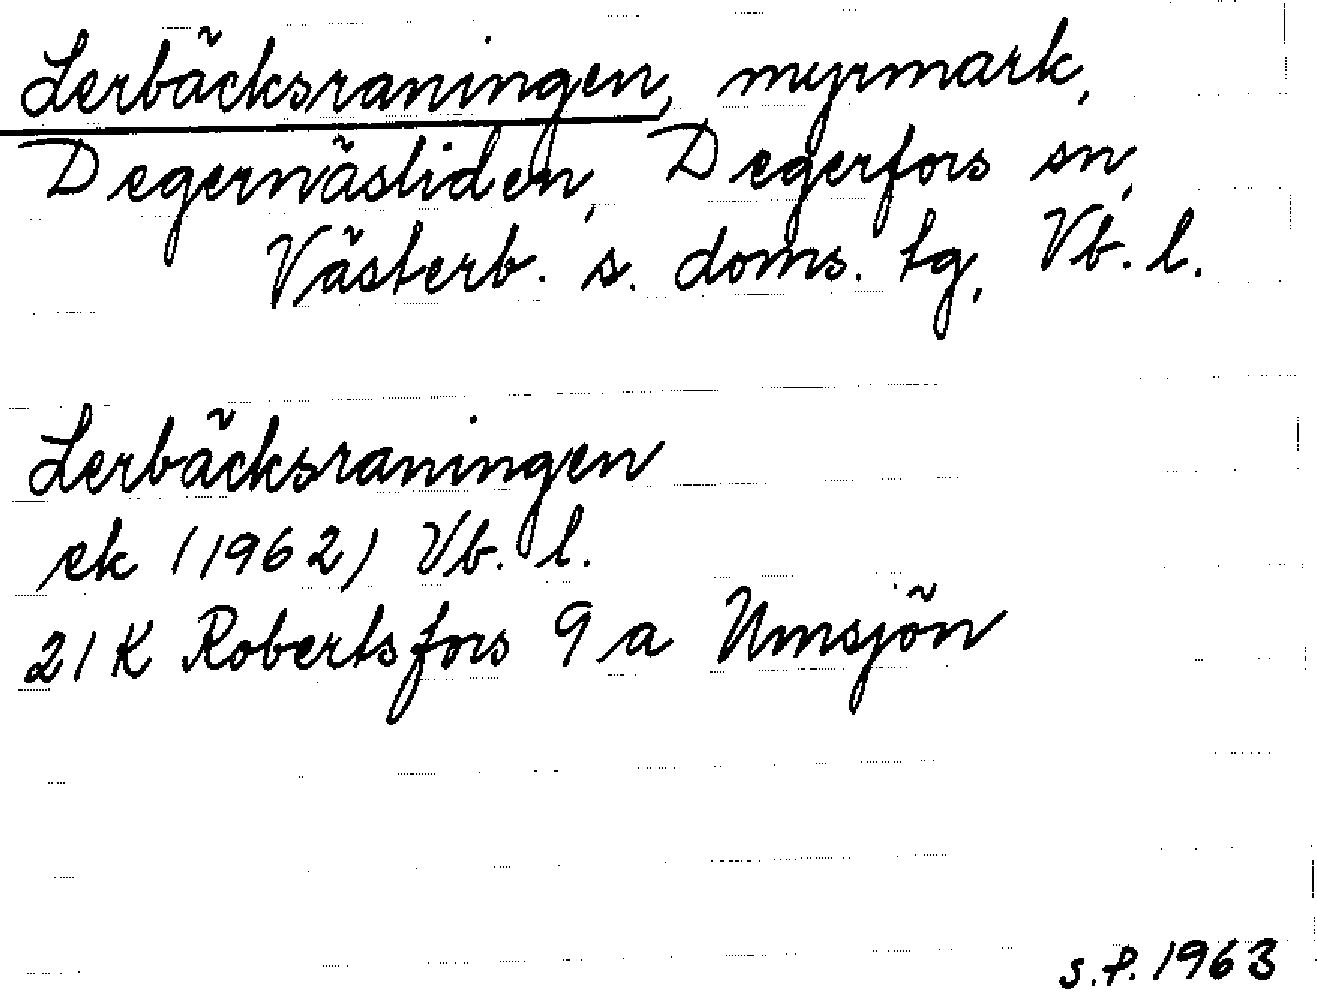 Lerbäcksraningen, myrmark,
Degernäsliden, Degerfors sn,
Västerb. s. doms. tg, Vb. l.
Lerbäcksraningen
ek (1962) Vb. l.
21K Robertsfors 9 a Umsjön
S.P. 1963